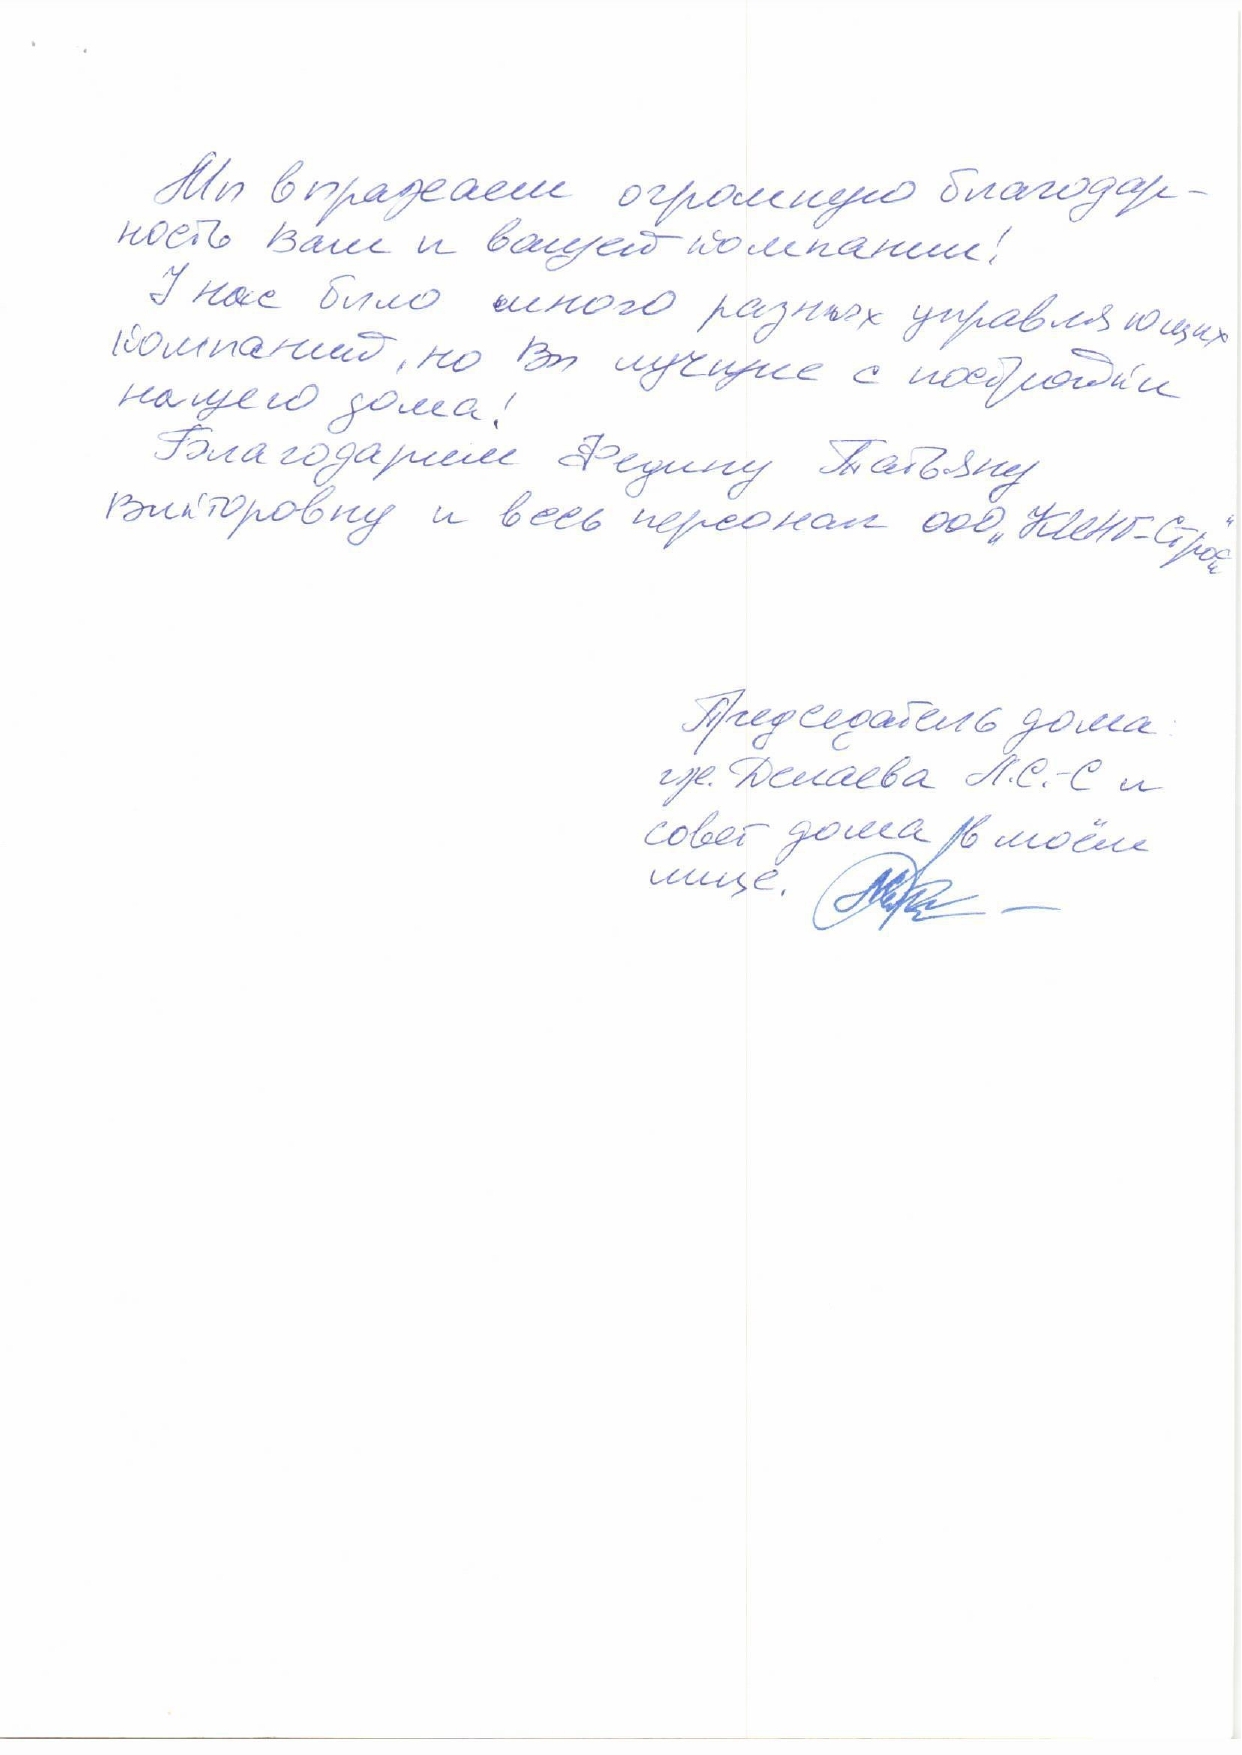 Мы выражаем огромную благодар-
ность Вам и вашей компании!
У нас было много разных управляющих
компаний, но Вы лучшие с постройки
нашего дома!
Благодарим Федину Татьяну
Викторовну и весь персонал ООО „КМНГ-Строй"
Председатель дома:
гр. Делаева Л.С.-С и
совет дома в моём
лице.